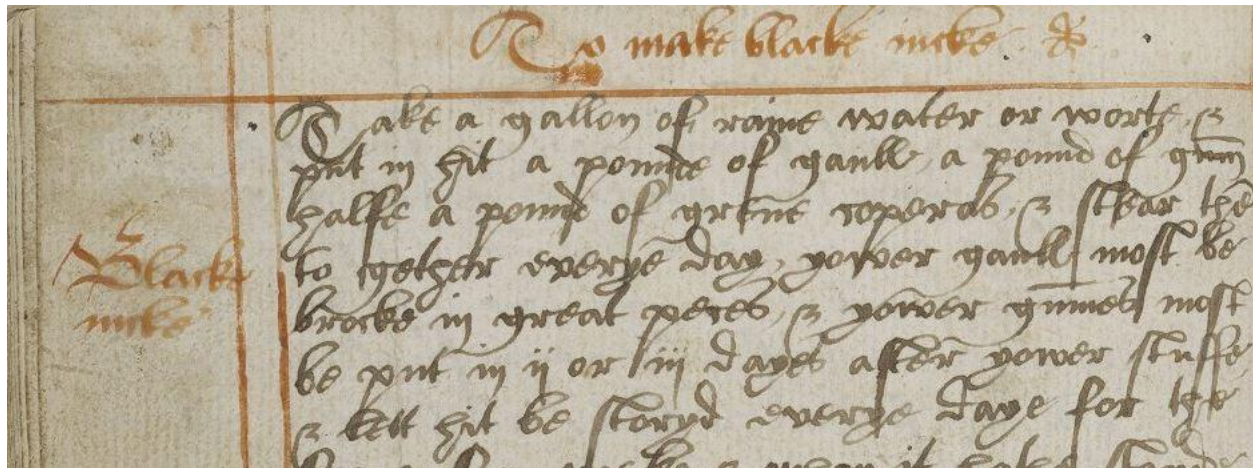 To make blacke incke &
Take a gallon of raine water or worte, &
put in hit a pounde of gaull, a pound of gum
halfe a pound of grene coperas, & stear the
Blacke
to gether everye day, yower gaull most be
incke
brocke in great peces, & yower gumes most
be put in ij or iij dayes after yower stuffe,
& lett hit be storyd everye daye for the